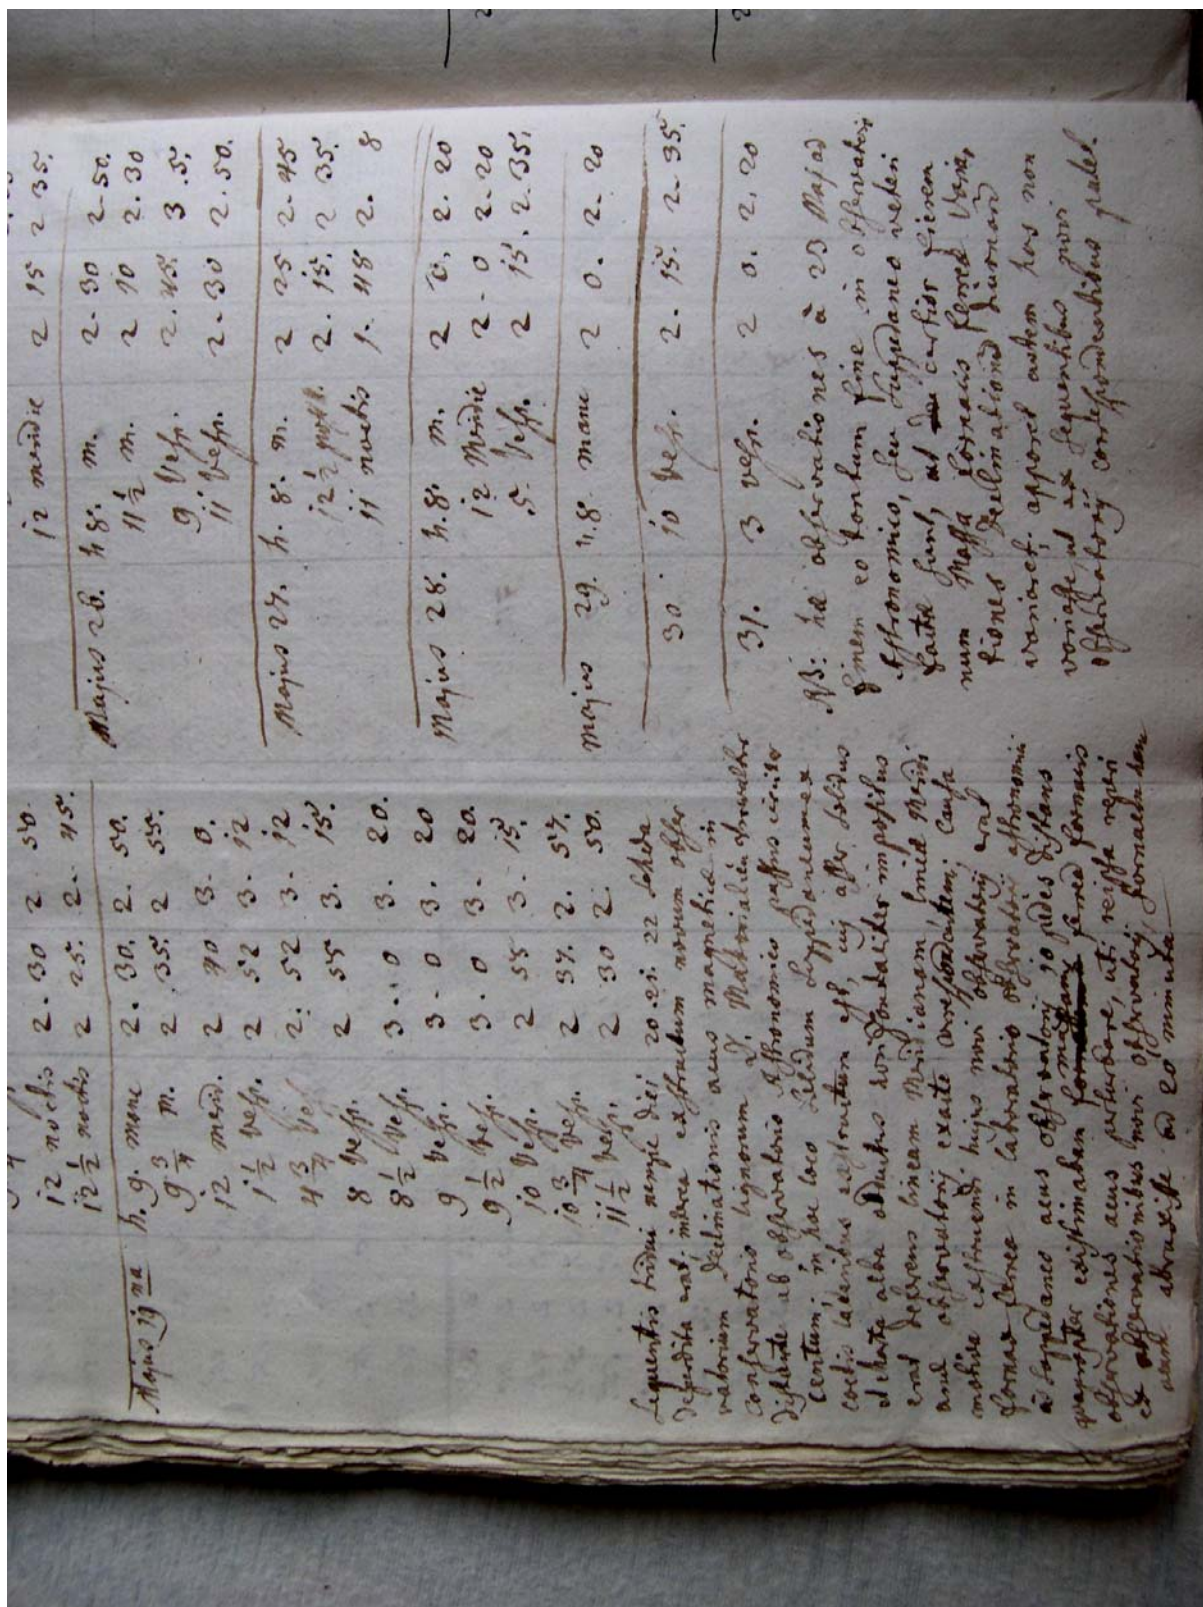 12 noctis 2. 30 2 50.
12 1/2 noctis 2 25. 2. 45.
Majus 19 na h. 9. mane 2. 30. 2. 50.
9 3/4 m. 2 35. 2 55.
12 merid. 2 40 3. 0.
1 1/2 vesp. 2 52 3. 12
4 3/4 vesp. 2. 52 3. 12
8 vesp. 2 55 3. 15.
8 1/2 vesp. 3. 0 3. 20.
9 vesp. 3. 0 3. 20
9 1/2 vesp. 3. 0 3. 20.
10 vesp. 2 55 3. 15.
10 3/4 vesp. 2 37. 2. 57.
11 1/2 vesp. 2 30 2. 50.
Sequentis tridui nempe diei 20. 21. 22 scheda
deperdita erat. interea exstructum novum obser
vatorium declinationis acus magneticae in
conservatorio lignorum
distante ab observatorio Astronomico passus circiter
centum; in hoc loco solidum suppedaneum ex
coctis lateribus exstructum est, cui asser solidus
et charta alba obductus horizontaliter impositus
erat deferens lineam meridianam lineae meridi
anae observatorii exacte correspondentem; causa
motiva exstruendi hujus novi observatorii erat
fornax ferrea in laboratorio observatorii astronomici
a suppedaneo acus observatorii 10 pedes distans
quapropter existimabam massam ferream fornacis
observationes acus perturbare, uti reipsa reperi
ex observationibus novi observatorii, fornacem hanc
acum attraxisse ad 20 minuta
12 meridie 2 15 2 35.
Majus 26. h 8. m. 2. 30 2. 50.
11 1/2 m. 2 10 2. 30
9 vesp. 2. 45. 3. 5.
11 vesp. 2. 30 2. 50.
Majus 27. h. 8. m. 2 25 2. 45
12 1/2 2. 15. 2 35.
11 noctis 1. 48 2. 8
Majus 28. h. 8. m. 2 0. 2. 20
12 Meridie 2. 0 2. 20
5. vesp. 2 15. 2. 35.
majus 29. h. 8. mane 2 0. 2. 20
30. 10 vesp. 2. 15. 2. 35.
31. 3 vesp. 2 0. 2. 20
NB: hae observationes à 23 Maji ad
finem eo tantum fine in observatorio
Astronomico, seu suppedaneo veteri
factae sunt, ut certior fierem
num Massa fornacis ferreae
tiones declinationum diurnarum
variaret. apparet autem has non
variasse ut ex sequentibus novi
observatorii correspondentibus patet.